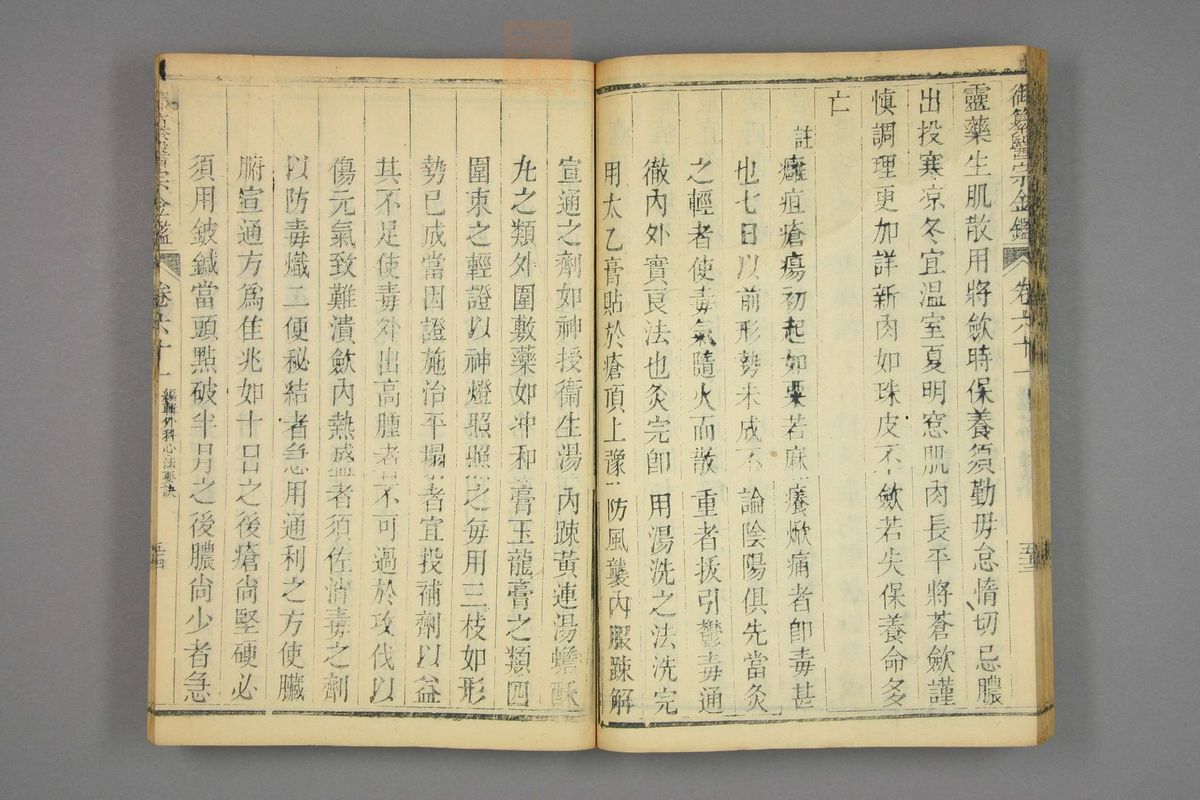 御纂醫宗金鑑 卷六十一
靈藥生肌散用將歛時保養須勤毋怠惰切忌膿
出投寒凉冬宜温室夏明窓肌肉長平將蒼歛謹
慎調理更加詳新肉如珠皮不歛若失保養命多
亡
註癰疽瘡瘍初起如粟若麻癢焮痛者卽毒甚
也七日以前形勢未成不論陰陽俱先當灸
之輕者使毒氣隨火而散重者拔引鬱毒通
徹內外實良法也灸完卽用湯洗之法洗完
用太乙膏貼於瘡頂上豫防風襲內服踈解
宣通之劑如神授衛生湯內踈黃連湯蟾酥
九之類外圍敷藥如冲和膏玉龍膏之類四
圍束之輕證以神燈照照之每用三枝如形
勢已成當因證施治平塌者宜投補劑以益
其不足使毒外出高腫者不可過於攻伐以
傷元氣致難潰歛內熱盛者須佐消毒之劑
以防毒熾二便秘結者急用通利之方使臟
腑宣通方爲佳兆如十日之後瘡尙堅硬必
須用鈹鍼當頭點破半月之後膿尙少者急
醫宗金鑑 卷六十一 編輯外科心法要訣 五四